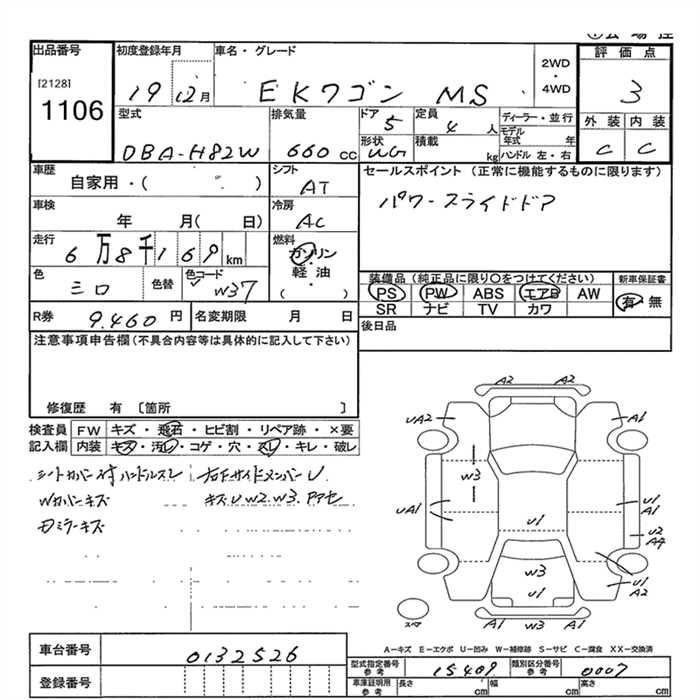 出品番号
[2128]
1106
初度登録年月
19 12月
車名・グレード
EKワゴン MS
2WD
・
4WD
評 価 点
3
型式
DBA-H82W
排気量
660 cc
ドア
5
形状
定員
4 人
積載
kg
ディーラー・並行
モデル
年式 年
ハンドル 左・右
外 装
C
内 装
C
車歴
自家用・( )
シフト
AT
車検
年 月( 日)
冷房
AC
走行
6万8千169km
燃料
ガソリン
・
軽 油
・
( )
色
シロ
色替
色コード
W37
R券
9.460 円
名変期限 月 日
セールスポイント (正常に機能するものに限ります)
パワースライドドア
装備品 (純正品に限り○をつけてください)
PS PW ABS エアB AW
SR ナビ TV カワ
新車保証書
有・無
後日品
注意事項申告欄(不具合内容等は具体的に記入して下さい)
修復歴 有 〔箇所 〕
検査員
記入欄
FW
キズ・飛石・ヒビ割・リペア跡・×要
内装
キズ・汚レ・コゲ・穴・スレ・キレ・破レ
シートカバー付 ハンドルスレ
Wカバーキズ
右下サイドメンバーU
キズU W2.W3.
ミラーキズ
A2 A2
UA2 A1
W3
UA1 U1
A1
U1
U2
A4
W3
U1
U1
A2
A1 W3 A1
スペア
A−キズ E−エクボ U−凹み W−補修跡 S−サビ C−腐食 XX−交換済
車台番号
0132526
登録番号
型式指定番号
参考
15409
類別区分番号
参考
0007
車庫証明用
参考
長さ cm
幅 cm
高さ cm